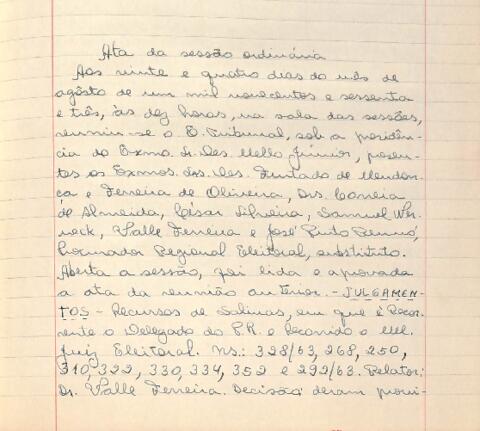 Ata da sessão ordinária
Aos vinte e quatro dias do mês de
agôsto de um mil novecentos e sessenta
e três, às dez horas, na sala das sessões,
reuniu-se o E. Tribunal, sob a presidên-
cia do Exmo. Sr. Des. Mello Júnior, presen-
tes os Exmos. Srs. Des. Furtado de Mendon-
ça e Ferreira de Oliveira, Drs. Correia
de Almeida, César Silveira, Samuel Wer-
neck, Valle Ferreira e José Pinto Renó,
Procurador Regional Eleitoral, substituto.
Aberta a sessão, foi lida e aprovada
a ata da reunião anterior. - JULGAMEN-
TOS - Recursos de Salinas, em que é Recor-
rente o Delegado do P.R. e Recorrido o MM.
Juiz Eleitoral. Ns.: 328/63, 268, 250,
310, 322, 330, 334, 352 e 292/63. Relator:
Dr. Valle Ferreira. Decisão: deram provi-